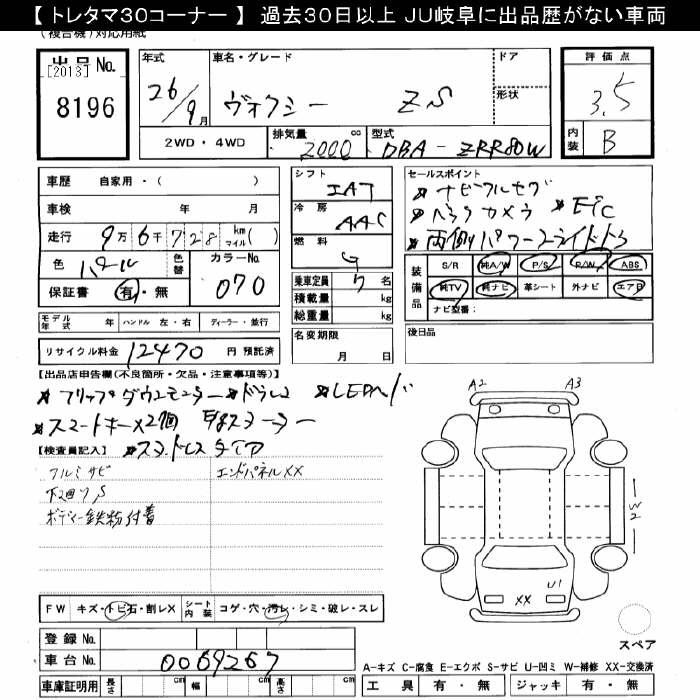 【 トレタマ30コーナー 】 過去30日以上 JU岐阜に出品歴がない車両
(複合機)対応用紙
出品 No.
[2013]
8196
年式
26/9月
車名・グレード
ヴォクシー ZS
ドア
形状
評価点
3.5
内装
B
2WD・4WD
排気量
2000 cc
型式
DBA - ZRR80W
車歴 自家用・( )
車検 年 月
走行 9万6千728 km マイル( )
色 パール
色替
カラーNo.
070
保証書 有・無
シフト
IAT
冷房
AAC
燃料
G
乗車定員 7名
積載量 kg
総重量 kg
セールスポイント
★ナビフルセグ
★バックカメラ ★ETC
★両側パワースライドドア
装備品
S/R 純A/W P/S P/W ABS
純TV 純ナビ 革シート 外ナビ エアB
ナビ型番:
モデル年式 年 ハンドル 左・右 ディーラー・並行
リサイクル料金 12470 円 預託済
名変期限
月 日
後日品
【出品店申告欄(不良箇所・欠品・注意事項等)】
★フリップダウンモニター ★ドラレコ ★LEDヘッド
★スマートキー×2個
★スタッドレスタイヤ
【検査員記入】
フルミサビ
エンドパネルXX
下回りS
ボディー鉄粉付着
A2
A3
W2
U1
XX
スペア
FW キズ・トビ石・割レX
シート内装 コゲ・穴・汚レ・シミ・破レ・スレ
登録 No.
車台 No. 0069267
車庫証明用 長さ cm 幅 cm 高さ cm
A-キズ C-腐食 E-エクボ S-サビ U-凹ミ W-補修 XX-交換済
工具 有・無 ジャッキ 有・無